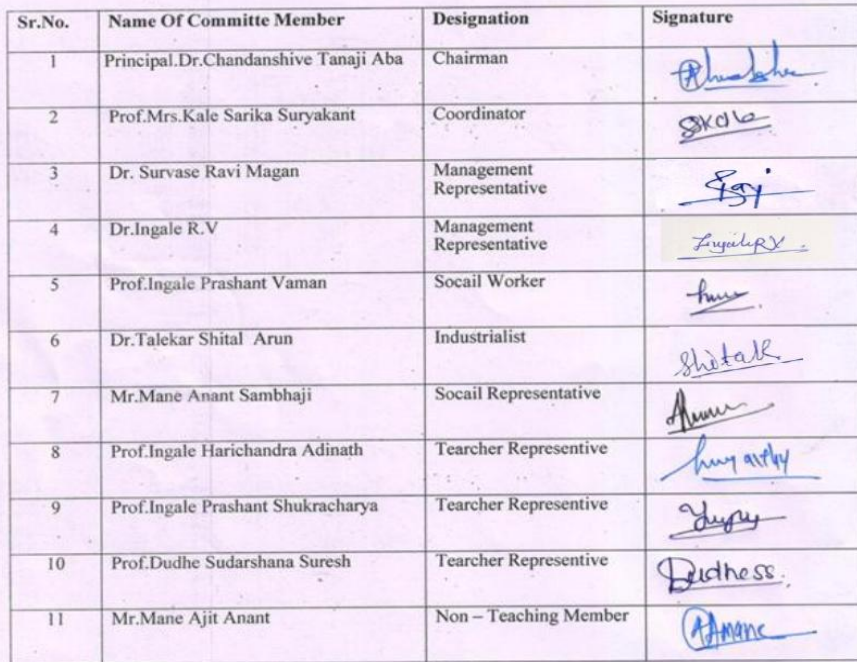 Sr.No. Name Of Committe Member Designation Signature
1 Principal.Dr.Chandanshive Tanaji Aba Chairman
2 Prof.Mrs.Kale Sarika Suryakant Coordinator
3 Dr. Survase Ravi Magan Management
Representative
4 Dr.Ingale R.V Management
Representative IngaleRV
5 Prof.Ingale Prashant Vaman Socail Worker
6 Dr.Talekar Shital Arun Industrialist
7 Mr.Mane Anant Sambhaji Socail Representative
8 Prof.Ingale Harichandra Adinath Tearcher Representive
9 Prof.Ingale Prashant Shukracharya Tearcher Representive
10 Prof.Dudhe Sudarshana Suresh Tearcher Representive Dudhess.
11 Mr.Mane Ajit Anant Non – Teaching Member AAMane